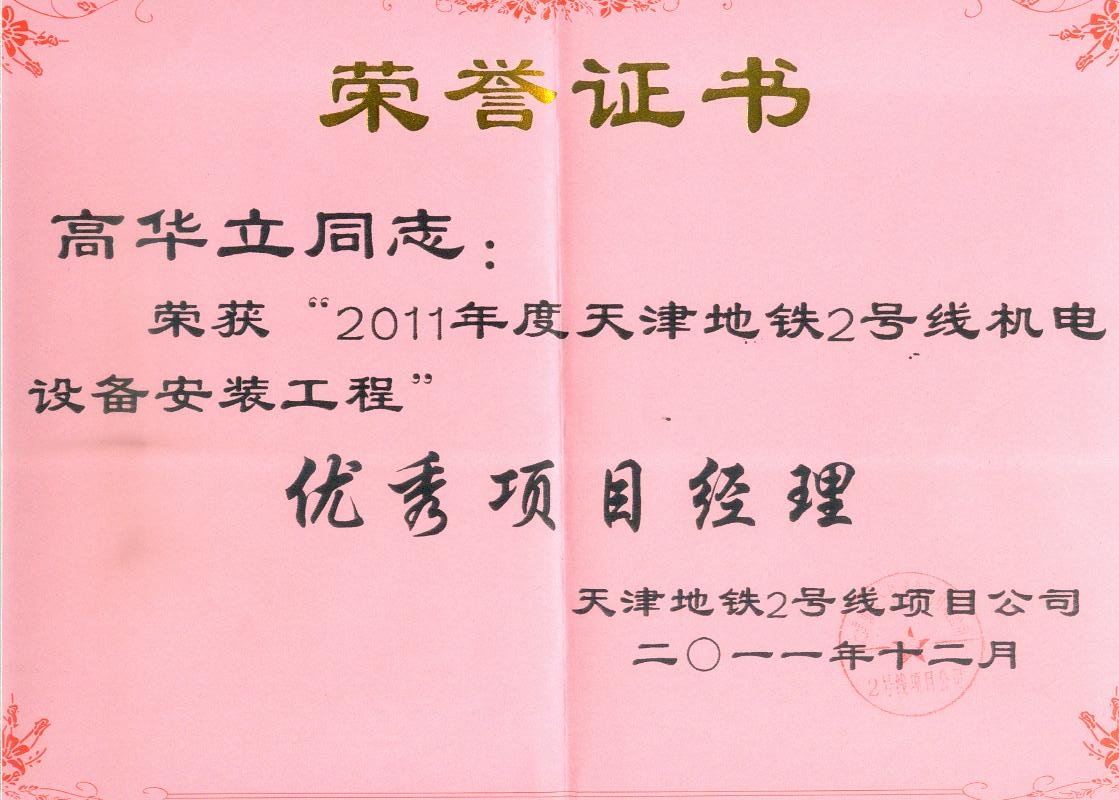 荣誉证书
高华立同志：
荣获“2011年度天津地铁2号线机电
设备安装工程”
优秀项目经理
天津地铁2号线项目公司
二〇一一年十二月
2号线项目公司